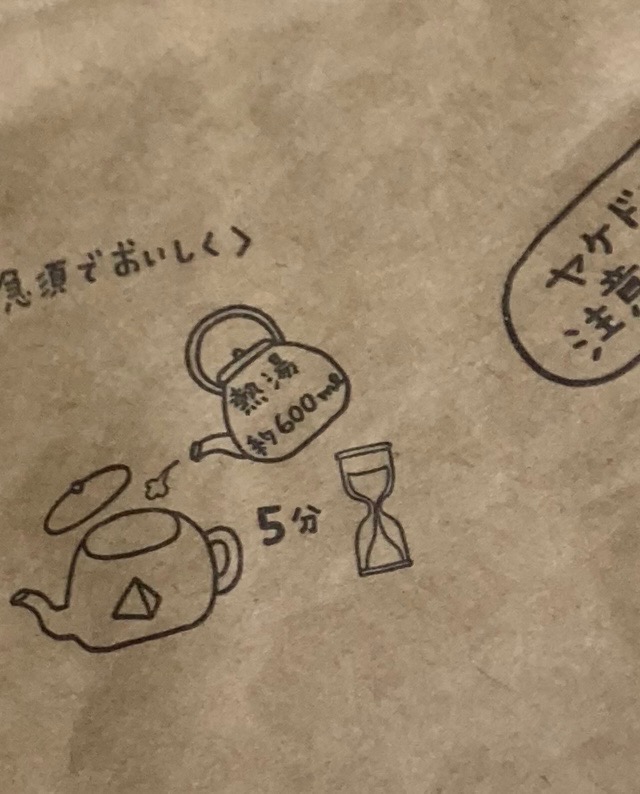 急須でおいしく〉
熱湯
約600ml
5分
ヤケド
注意